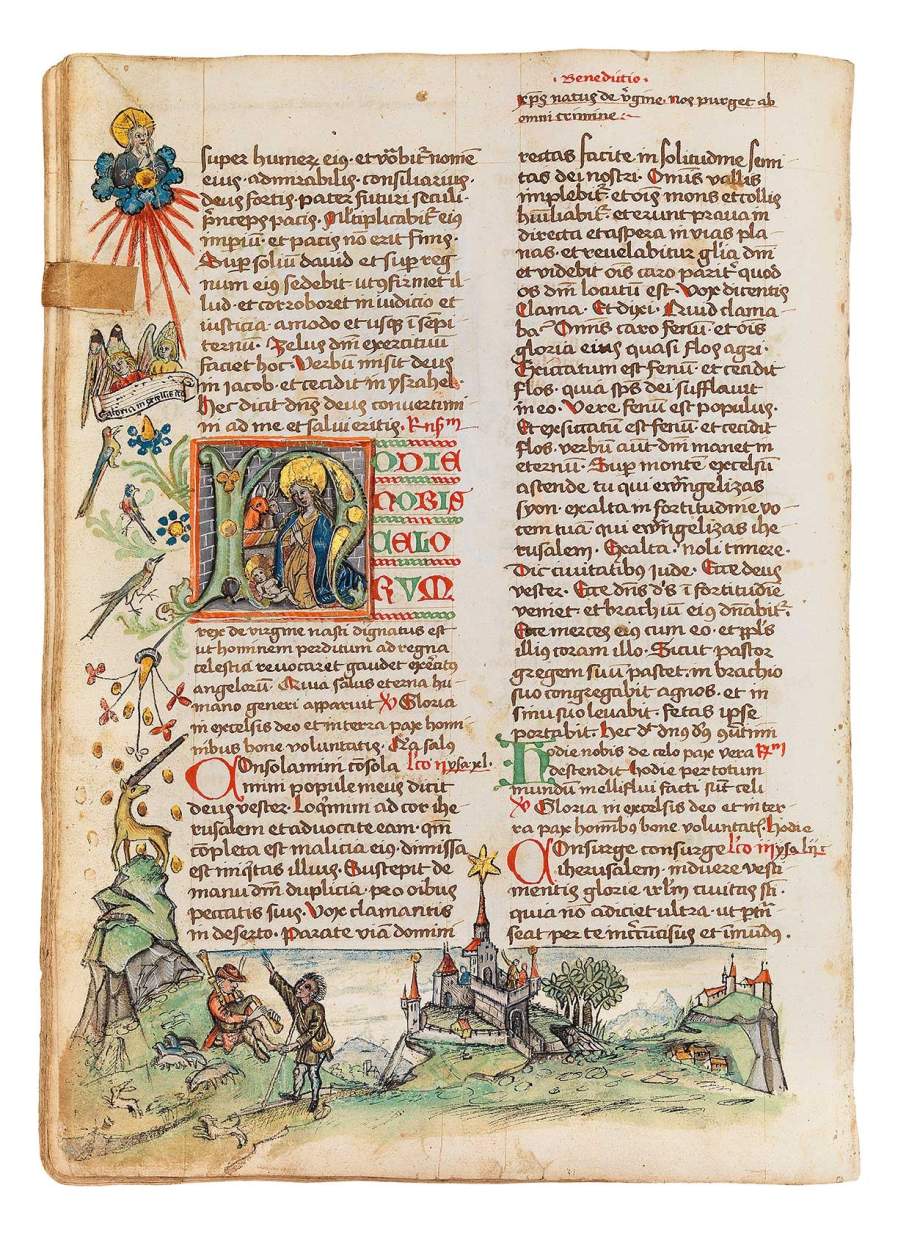 super humerꝫ eiꝰ · et vocabit᷑ nomē
eius · admirabilis · consiliarius ·
deus fortis · pater futuri seculi ·
p̄nceps pacis · Mltiplicabit᷑ eiꝰ
impiū · et pacis nō erit finis ·
Sup̱ soliū david et sup̱ reg
num eiꝰ sedebit ut ꝯfirmet il
lud · et corroboret in iudicio et
iusticia · amodo et usqꝫ ī sēpi
ternū · Zelus dm̄ exercituū
faciet hoc · Verbū misit deus
in iacob · et cecidit in ysrahel ·
Hec dicit dn̄s deus convertimi
ni ad me et salui eritis ·
Gloria in excelsis
HODIE
NOBIS
CELO
RVM
rex de virgine nasci dignatus est
ut hominem perditum ad regna
celestia revocaret gaudet exercitꝰ
angelorū · Quia salus eterna hu
mano generi apparuit ℣ Gloria
in excelsis deo et in terra pax homi
nibus bone voluntatis · Q̄a salꝰ
Consolamini cōsola lc̄o ij ysa xl ·
mini popule meus dicit
deus vester · Loqͥmini ad cor ihe
rusalem et advocate eam · qm̄
cōpleta est malicia eiꝰ · dimissa
est iniqͥtas illius · Suscepit de
manu dm̄ duplicia · p̱ oībus
peccatis suis · Vox clamantis
in deserto · Parate viā domini
· Benedictio ·
xp̄s natus de v̓gine · nos purget ab
omni crimine
rectas facite in solitudine semi
tas dei nostri · Omis vallis
implebit᷑ · et oīs mons et collis
humiliabit᷑ · et erunt prava in
directa et aspera in vias pla
nas · et revelabitur glīa dm̄
et videbit oīs caro parit᷑ quod
os dm̄ locutū est · Vox dicentis
Clama · Et dixi · Quid clama
ba Omis caro fenū · et oīs
gloria eius quasi flos agri ·
Exiccatum est fenū · et cecidit
flos · quia sp̄s dei sufflavit
in eo · Vere fenū est populus ·
Et exsiccatū est fenū · et cecidit
flos · verbū aūt dm̄ manet in
eternū · Sup̱ montē excelsū
ascende tu qui ewāngelizas
syon · exalta in fortitudine vo
cem tuā qui ewāngelizas ihe
rusalem · Exalta · noli timere ·
Dic civitatibꝰ iude · Ecce deus
vester · Ecce dn̄s d̄s ī fortitudīe
veniet · et brachiū eiꝰ dn̄abit᷑ ·
Ecce merces eiꝰ cum eo · et opꝰ
illiꝰ coram illo · Sicut pastor
gregem suū pascet · in brachio
suo congregabit agnos · et in
sinu suo levabit · fetas ipse
portabit · Hec dt̄ dn̄s ds̄ ꝯūtimi
Hodie nobis de celo pax vera
descendit Hodie per totum
mundū melliflui facti sūt celi
℣ Gloria in excelsis deo et in ter
ra pax hominibꝰ bone voluntatꝭ · Hodie
Consurge consurge lc̄o iij ysa lij
iherusalem · induere vesti
mentis glorie irl̄m civitas sc̄i ·
quia nō adiciet ultra · ut p̱trā
seat per te incircūcisus et īmūdꝰ ·